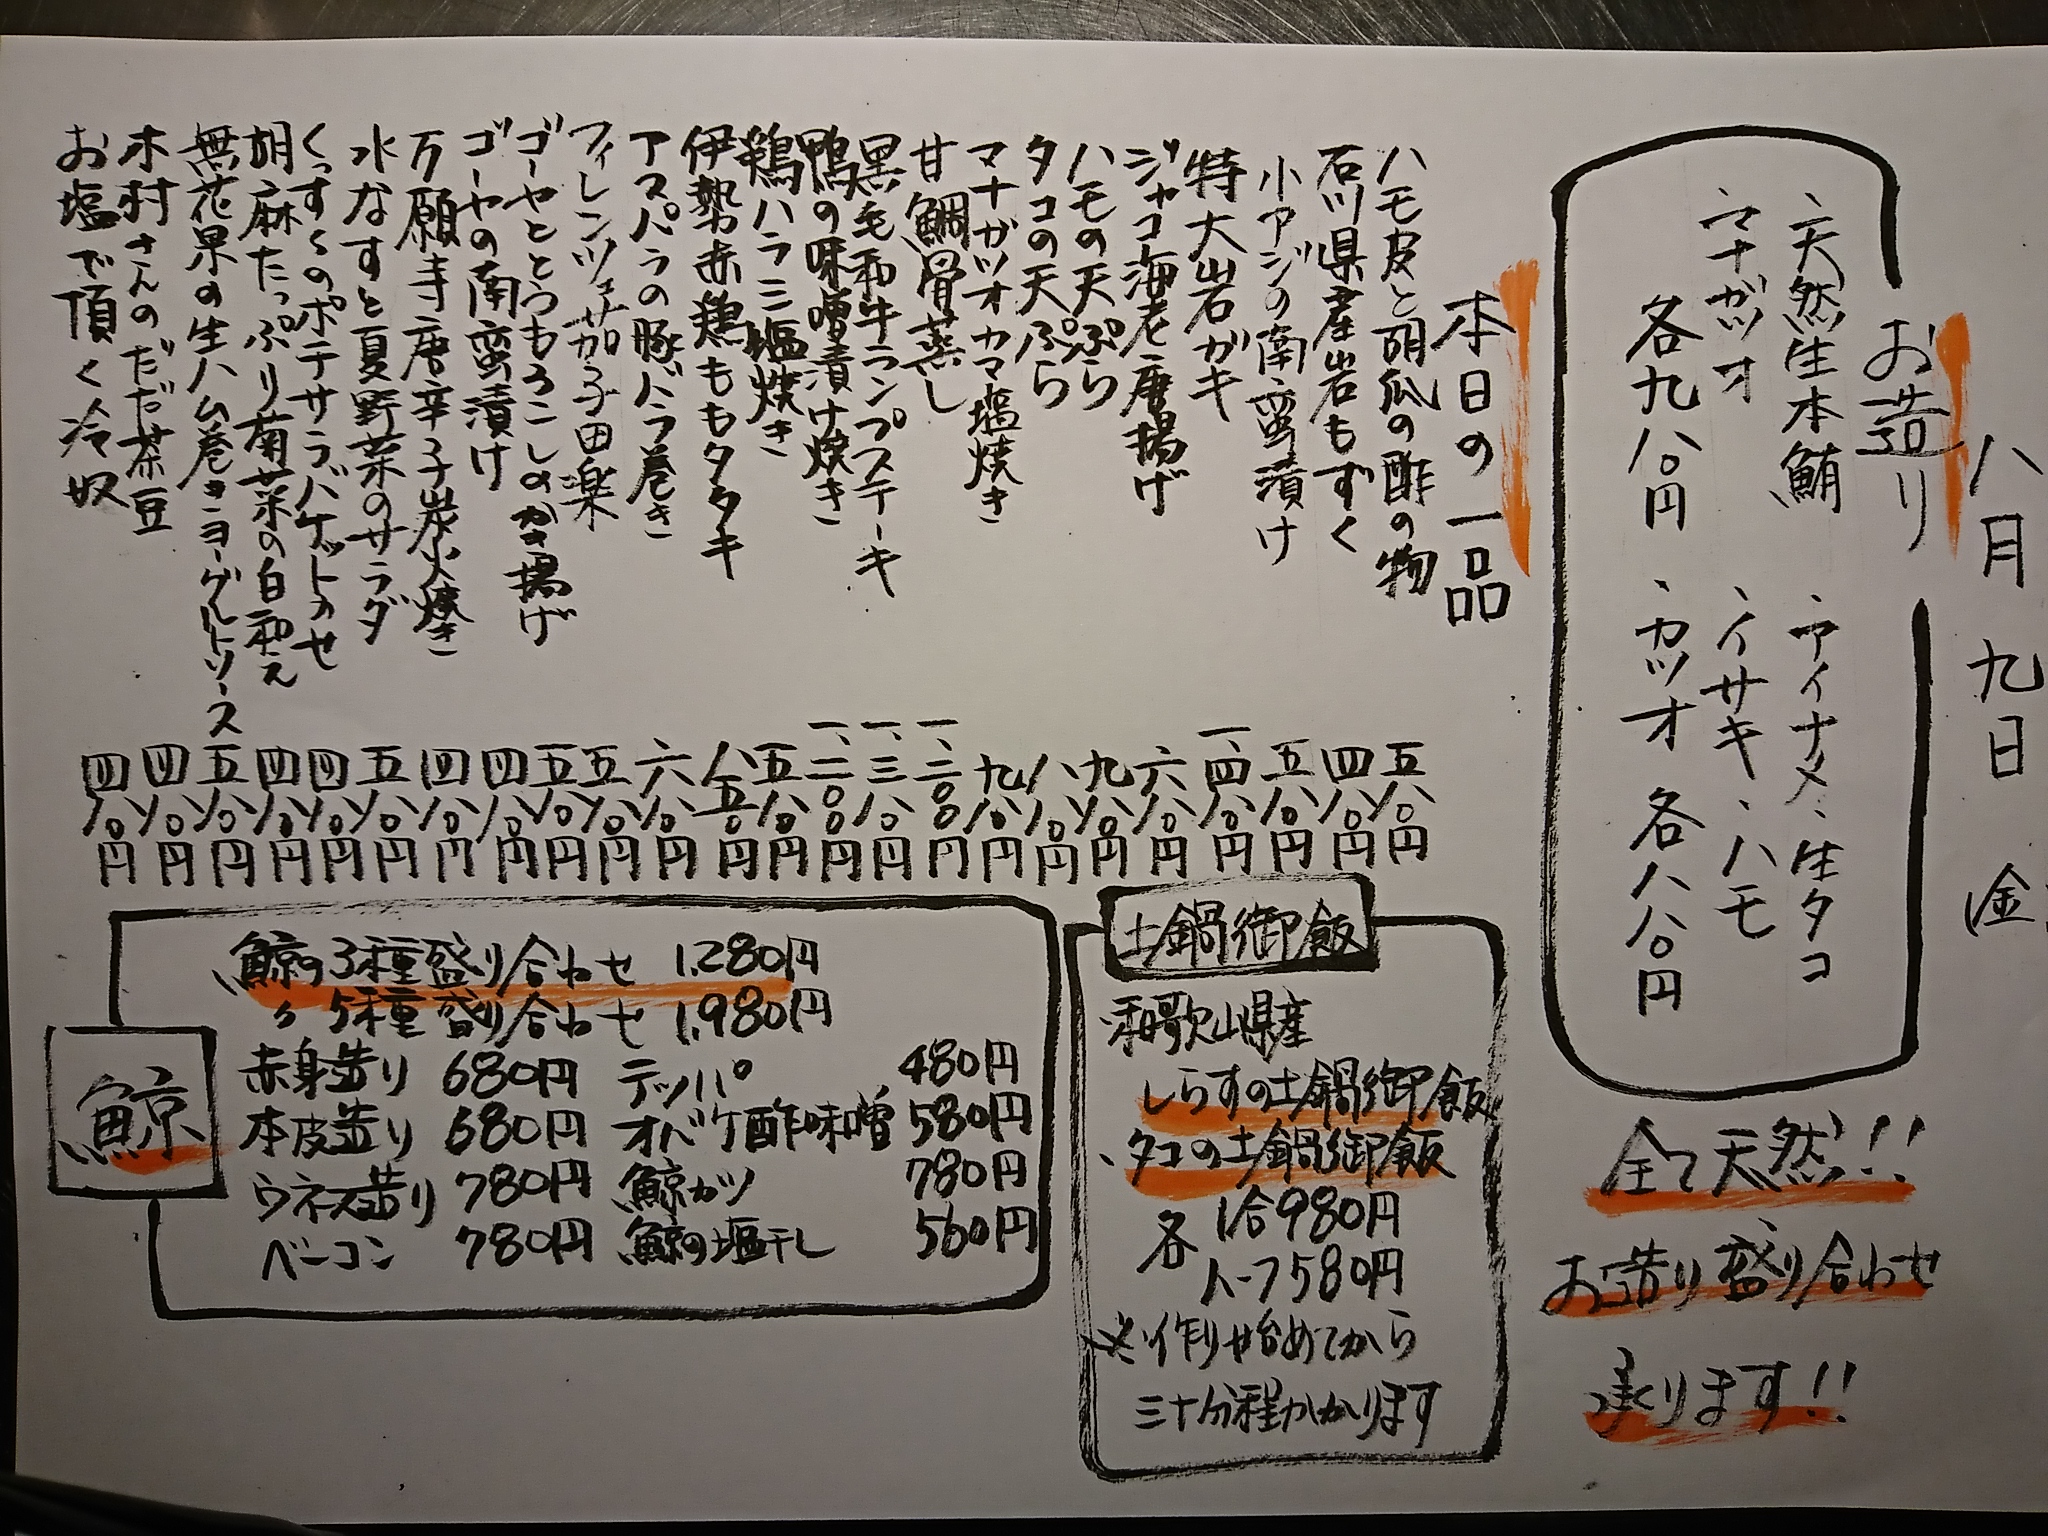 八月九日 金
お造り
、天然生本鮪 、アイナメ 、生タコ
、マナガツオ 、イサキ 、ハモ
各九八〇円 、カツオ 各八八〇円
全て天然!!
お造り盛り合わせ
承ります!!
本日の一品
ハモ皮と胡瓜の酢の物 五八〇円
石川県産岩もずく 四八〇円
小アジの南蛮漬け 五八〇円
特大岩ガキ 一、四八〇円
ジャコ海老唐揚げ 六八〇円
ハモの天ぷら 九八〇円
タコの天ぷら 八八〇円
マナガツオカマ塩焼き 九八〇円
甘鯛骨蒸し 一、二〇〇円
黒毛和牛ランプステーキ 一、三八〇円
鴨の味噌漬け焼き 一、二〇〇円
鶏ハラミ塩焼き 五八〇円
伊勢赤鶏ももタタキ 八五〇円
アスパラの豚バラ巻き 六八〇円
フィレンツェ茄子田楽 五八〇円
ゴーヤととうもろこしのかき揚げ 五八〇円
ゴーヤの南蛮漬け 四八〇円
万願寺唐辛子炭火焼き 四八〇円
水なすと夏野菜のサラダ 五八〇円
ポテサラバケットのせ 四八〇円
胡麻たっぷり菊菜の白和え 四八〇円
無花果の生ハム巻きヨーグルトソース 五八〇円
木村さんのだだ茶豆 四八〇円
お塩で頂く冷奴 四八〇円
土鍋御飯
・和歌山県産
しらすの土鍋御飯
・タコの土鍋御飯
各 1合980円
ハーフ580円
※作り始めてから
三十分程かかります
鯨
鯨の3種盛り合わせ 1,280円
〃 5種盛り合わせ 1,980円
赤身造り 680円 テッパ 480円
本皮造り 680円 オバケ酢味噌 580円
ウネス造り 780円 鯨カツ 780円
ベーコン 780円 鯨の塩干し 560円